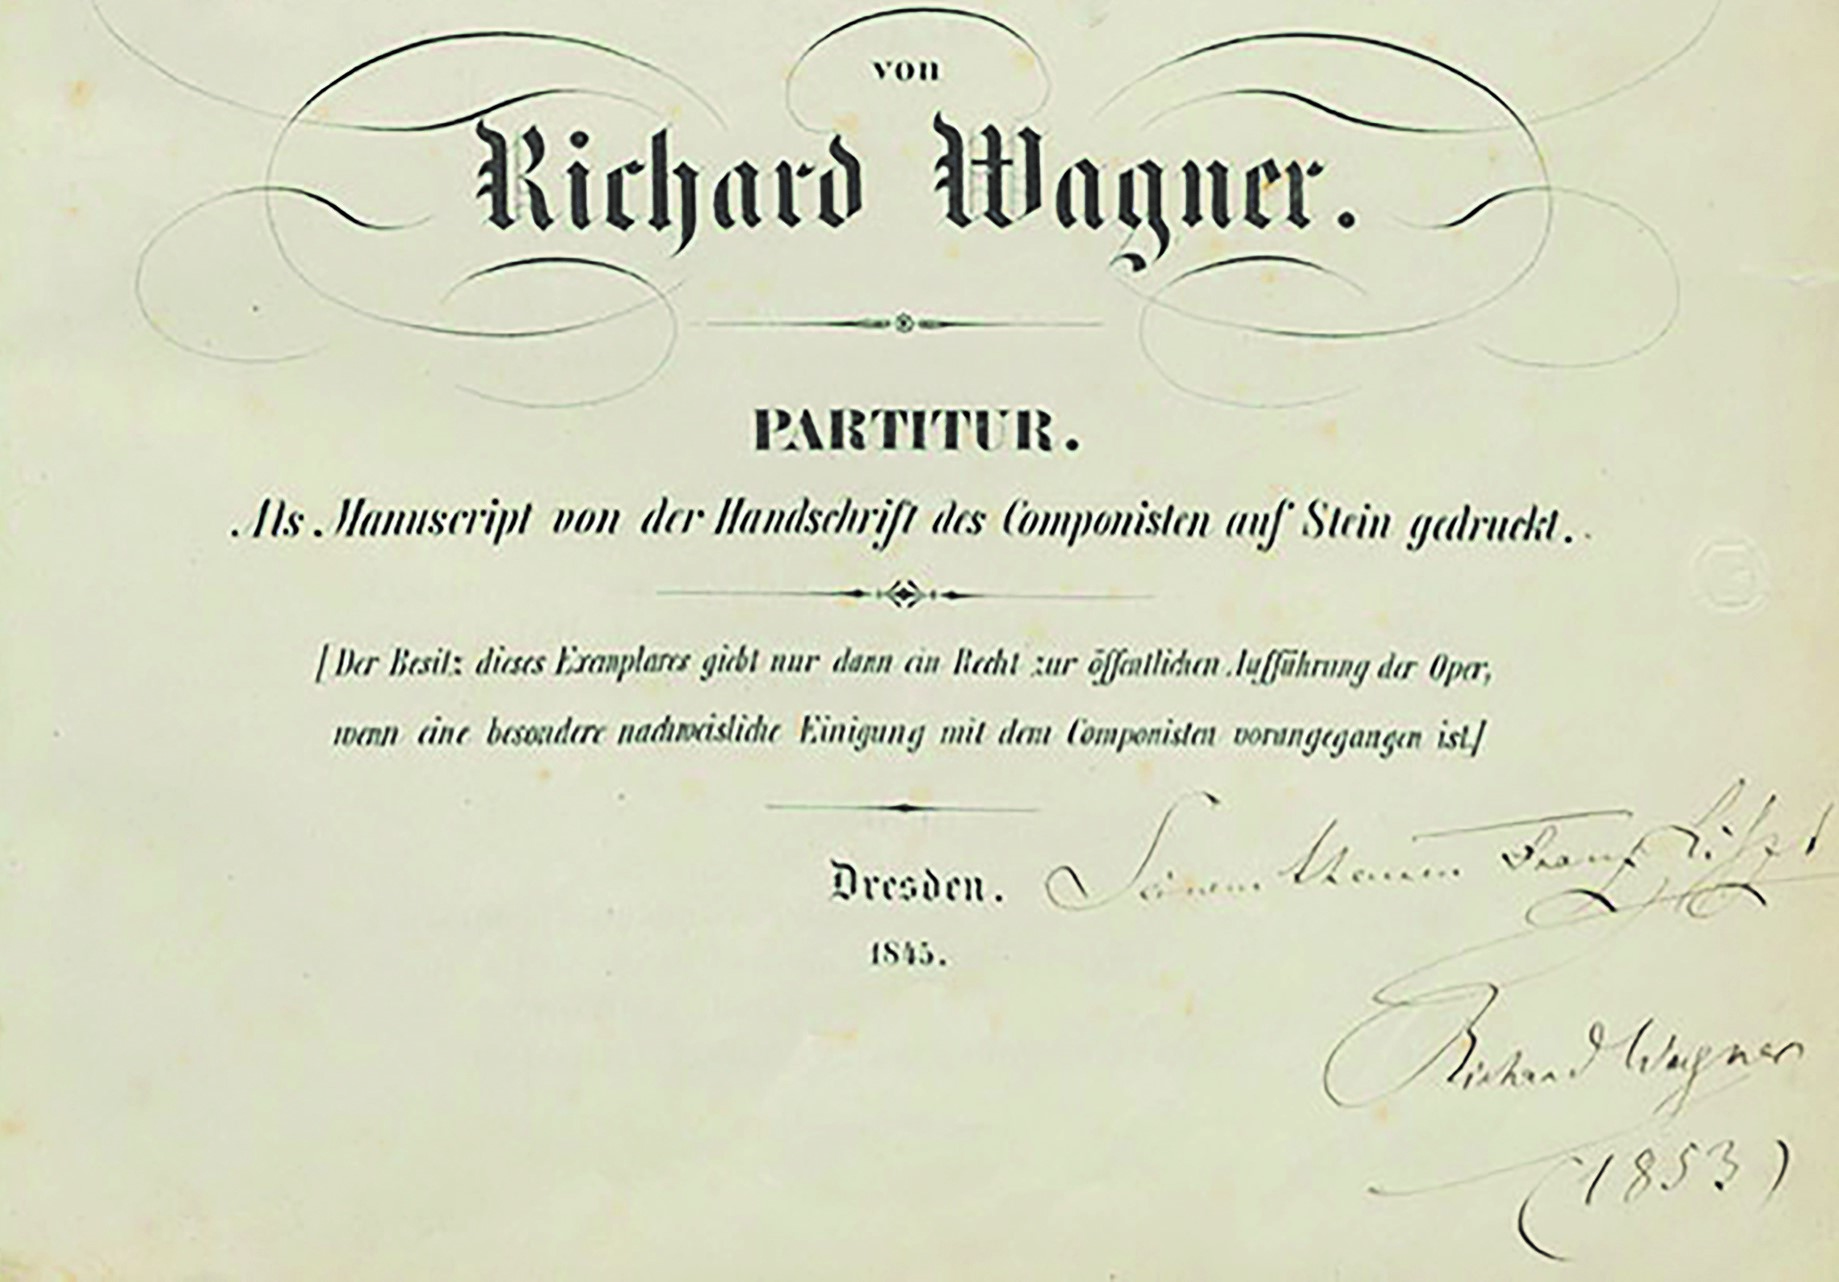 von
Richard Wagner.
PARTITUR.
Als Manuscript von der Handschrift des Componisten auf Stein gedruckt.
[Der Besitz dieses Exemplares giebt nur dann ein Recht zur öffentlichen Aufführung der Oper,
wenn eine besondere nachweisliche Einigung mit dem Componisten vorangegangen ist.]
Dresden.
Seinem theuren Franz Liszt
1845.
Richard Wagner
(1853)